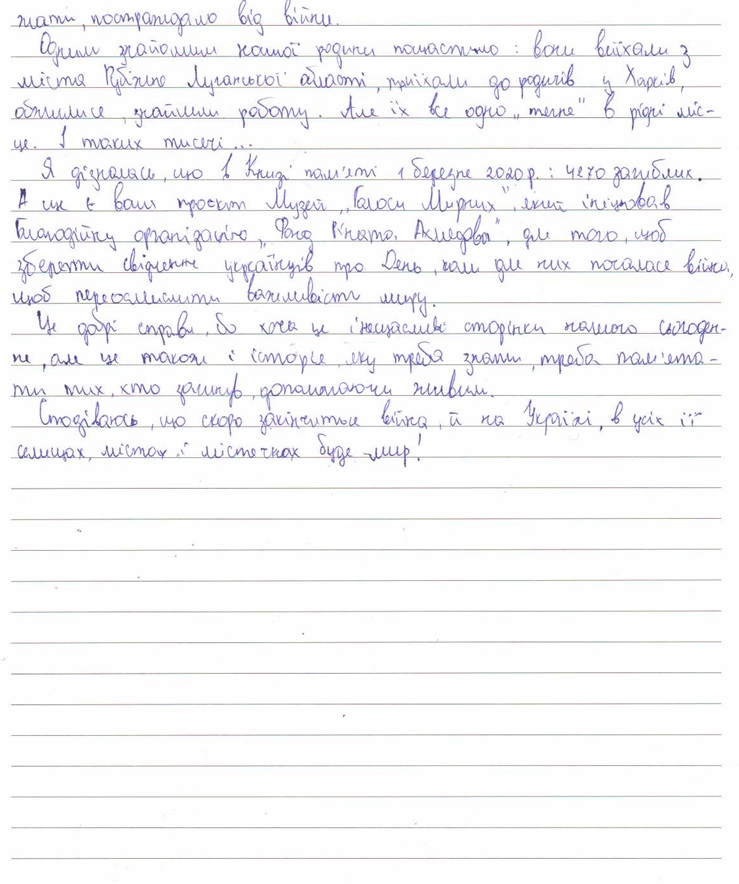 жати, постраждало від війни.
Одним знайомим нашої родини пощастило: вони виїхали з
міста Рубіжне Луганської області, приїхали до родичів у Харків,
обжилися, знайшли роботу. Але їх все одно „тягне" в рідні міс-
це. І таких тисячі...
Я дізналась, що в Книзі пам'яті 1 березня 2020 р.: 4270 загиблих.
А ще є ваш проєкт Музей „Голоси Мирних", який ініціював
Благодійну організацію „Фонд Ріната Ахмедова", для того, щоб
зберегти свідчення українців про День, коли для них почалася війна,
щоб переосмислити важливість миру.
Це добрі справи, бо хоча це і нещасливі сторінки нашого сьогоден-
ня, але це також і історія, яку треба знати, треба пам'ята-
ти тих, хто загинув, допомагаючи живим.
Сподіваюсь, що скоро закінчиться війна, й на Україні, в усіх її
селищах, містах і містечках буде мир!